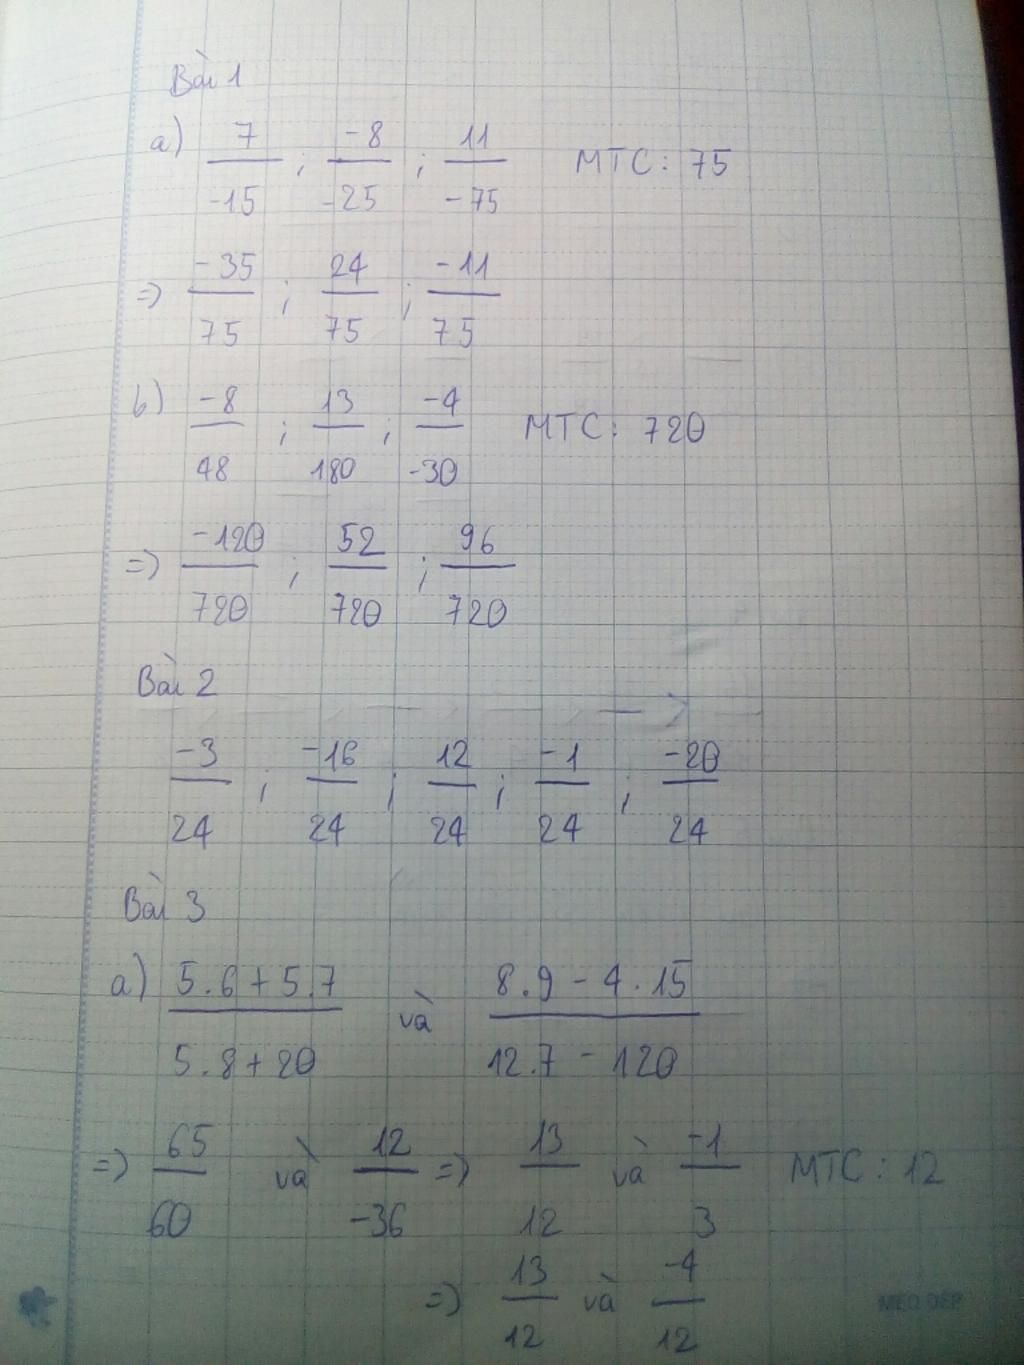 Bài 1
a) 7/-15 ; -8/-25 ; 11/-75 MTC: 75
=) -35/75 ; 24/75 ; -11/75
b) -8/48 ; 13/180 ; -4/-30 MTC: 720
=) -120/720 ; 52/720 ; 96/720
Bài 2
-3/24 ; -16/24 ; 12/24 ; -1/24 ; -20/24
Bài 3
a) 5.6 + 5.7/5.8 + 20 và 8.9 - 4.15/12.7 - 120
=) 65/60 và 12/-36 =) 13/12 và -1/3 MTC: 12
=) 13/12 và -4/12